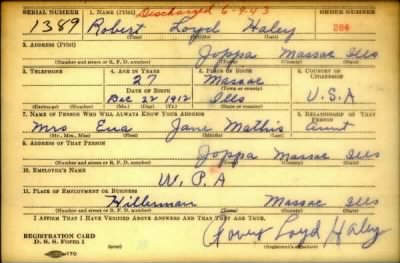 SERIAL NUMBER 1. NAME (Print) Discharged 6-9-43 ORDER NUMBER
1389 Robert Loyd Haley 284
2. ADDRESS (Print)
Joppa Massac Ills
(Number and street or R. F. D. number) (Town) (County) (State)
3. TELEPHONE 4. AGE IN YEARS 5. PLACE OF BIRTH 6. COUNTRY OF CITIZENSHIP
27 Massac
DATE OF BIRTH (Town or county)
Dec 22 1912 Ills U.S.A
(Exchange) (Number) (Mo.) (Day) (Yr.) (State or country)
7. NAME OF PERSON WHO WILL ALWAYS KNOW YOUR ADDRESS 8. RELATIONSHIP OF THAT PERSON
Mrs Eva Jane Mathis aunt
(Mr., Mrs., Miss) (First) (Middle) (Last)
9. ADDRESS OF THAT PERSON
Joppa Massac Ills
(Number and street or R. F. D. number) (Town) (County) (State)
10. EMPLOYER'S NAME
W.P.A
11. PLACE OF EMPLOYMENT OR BUSINESS
Hillerman Massac Ills
(Number and street or R. F. D. number) (Town) (County) (State)
I AFFIRM THAT I HAVE VERIFIED ABOVE ANSWERS AND THAT THEY ARE TRUE.
REGISTRATION CARD Robert Loyd Haley
D. S. S. Form 1 (Registrant's signature)
(over)